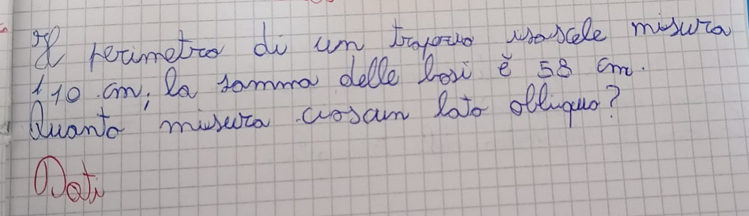 Il perimetro di un trapezio isoscele misura
110 cm; la somma delle basi è 58 cm.
Quanto misura ciascun lato obliquo?
Dati